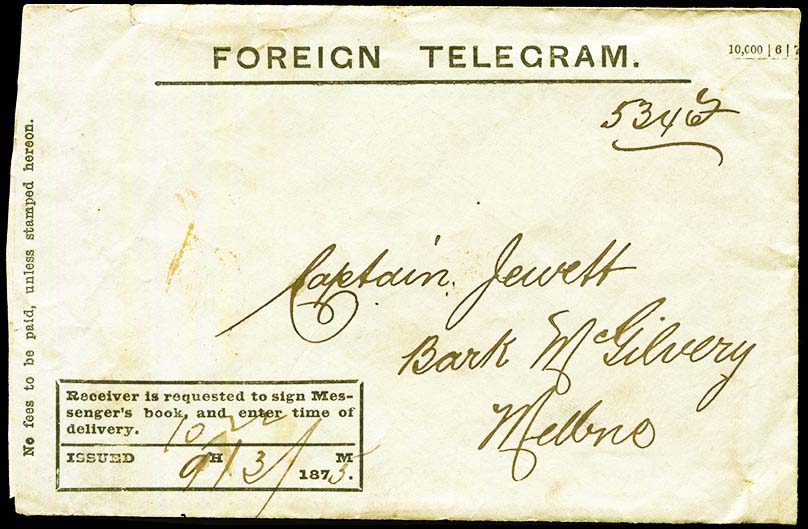 FOREIGN TELEGRAM.
10,000 | 6 | 7
Captain Jewett
Bark McGilvery
Melbne
No fees to be paid, unless stamped hereon.
Receiver is requested to sign Mes-
senger's book, and enter time of
delivery.
ISSUED H M
9/3/ 1875.